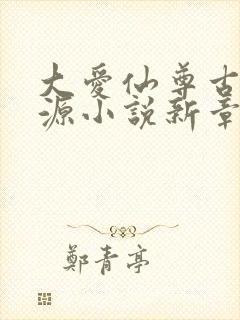 大愛仙尊古
源小說新章
鄭青亭